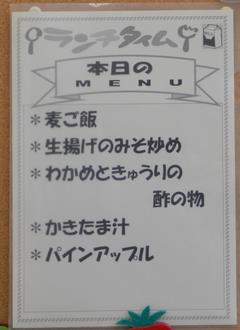 ランチタイム
本日の
MENU
＊麦ご飯
＊生揚げのみそ炒め
＊わかめときゅうりの
酢の物
＊かきたま汁
＊パインアップル